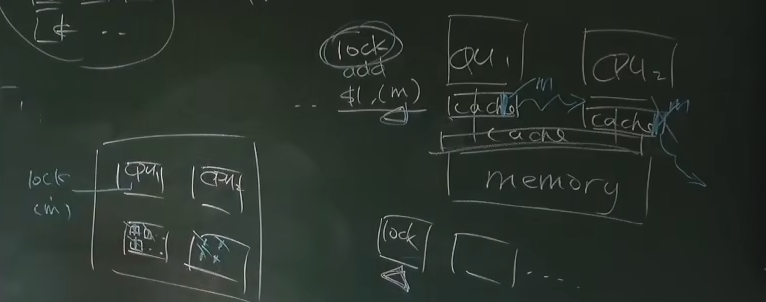 lock
add
$1, (m)
...
CPU1
CPU2
m
m
cache
cache
cache
memory
lock
(m)
CPU1
CPU2
lock
....